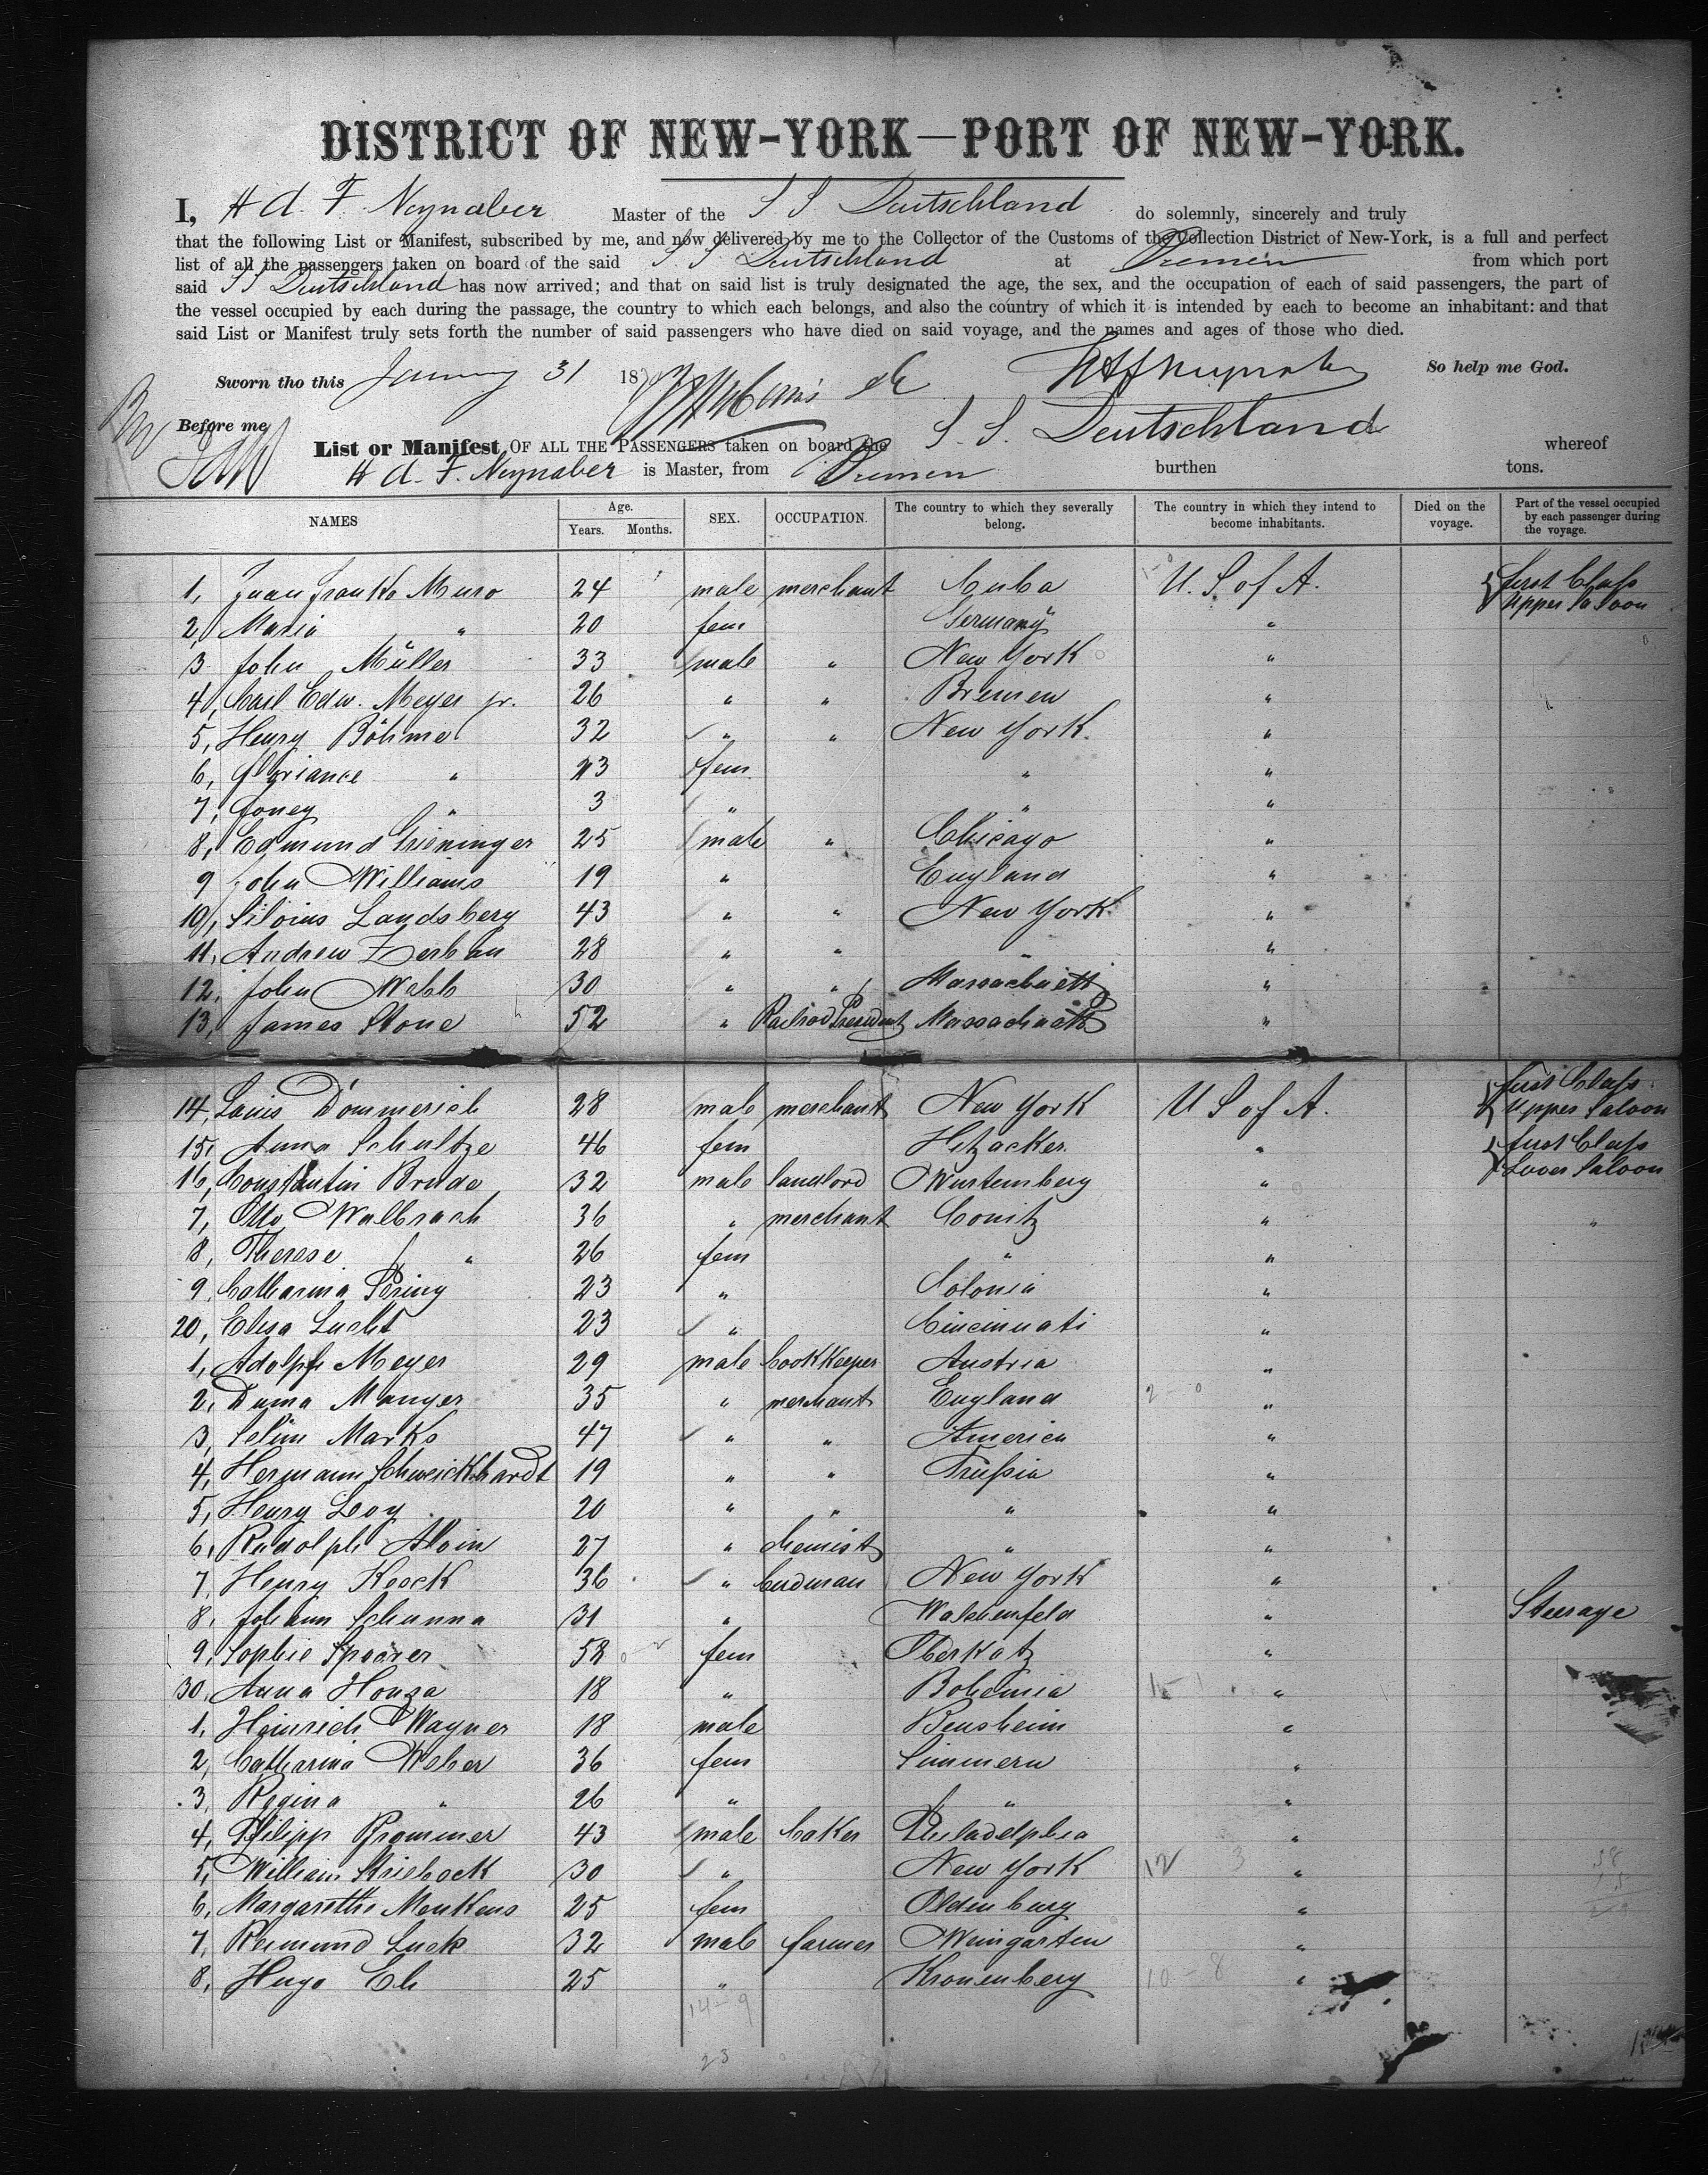 DISTRICT OF NEW-YORK—PORT OF NEW-YORK.
I, H A. F. Neynaber Master of the S S Deutschland do solemnly, sincerely and truly
that the following List or Manifest, subscribed by me, and now delivered by me to the Collector of the Customs of the Collection District of New-York, is a full and perfect
list of all the passengers taken on board of the said S S Deutschland at Bremen from which port
said S S Deutschland has now arrived; and that on said list is truly designated the age, the sex, and the occupation of each of said passengers, the part of
the vessel occupied by each during the passage, the country to which each belongs, and also the country of which it is intended by each to become an inhabitant: and that
said List or Manifest truly sets forth the number of said passengers who have died on said voyage, and the names and ages of those who died.
Sworn tho this January 31 18 So help me God.
Before me
List or Manifest OF ALL THE PASSENGERS taken on board the S. S. Deutschland whereof
H A. F. Neynaber is Master, from Bremen burthen tons.
NAMES Age. Years. Months. SEX. OCCUPATION. The country to which they severally belong. The country in which they intend to become inhabitants. Died on the voyage. Part of the vessel occupied by each passenger during the voyage.
1, Juan Franko Muro 24 male merchant Cuba U. S of A. first Class Upper Saloon
2, Maria " 20 fem Germany "
3 John Müller 33 male " New York "
4, Carl Edw. Meyer jr. 26 " " Bremen "
5, Henry Böhme 32 " " New York "
6, " 23 fem " "
7, " 3 " " "
8, Edmund Grieninger 25 male " Chicago "
9 John Williams 19 " England "
10, Silvius Landsberg 43 " " New York "
11, Andrew Zerban 28 " " " "
12, John Webb 30 " " Massachuetts "
13, James Stone 52 " Railroad President Massachuetts "
14, Louis Dommerich 28 male merchant New York U S of A. first Class Upper Saloon
15, Anna Schultze 46 fem Hitzacker "  first Class Lower Saloon
16, Constantin Brude 32 male landlord Wurtemberg "
7, Otto Walbrach 36 " merchant Conitz " "
8, Therese " 26 fem " "
9, Catharina Pering 23 " Colonia "
20, Elisa Lucht 23 " Cincinnati "
1, Adolph Meyer 29 male bookkeeper Austria "
2, Manger 35 " merchant England "
3, Selim Marks 47 " " America "
4, Hermann Schweickhardt 19 " " Prussia "
5, Henry Levy 20 " " " "
6, Rudolph Alvin 27 " chemist " "
7, Henry Keock 36 " New York "
8, Johann Schunna 31 " "  Steerage
9, Sophie 58 fem Oberkatz "
30, Anna Honza 18 " Bohemia "
1, Heinrich Wagner 18 male Bensheim "
2, Catharina Weber 36 fem Simmern "
3, Regina " 26 " " "
4, Philipp Brommer 43 male baker Philadelphia "
5, William Striebeck 30 " New York "
6, Margarethe Menkens 25 fem Oldenburg "
7, Reimund Luck 32 male farmer Weingarten "
8, Hugo Eh 25 " Kronenberg "
14-9
23